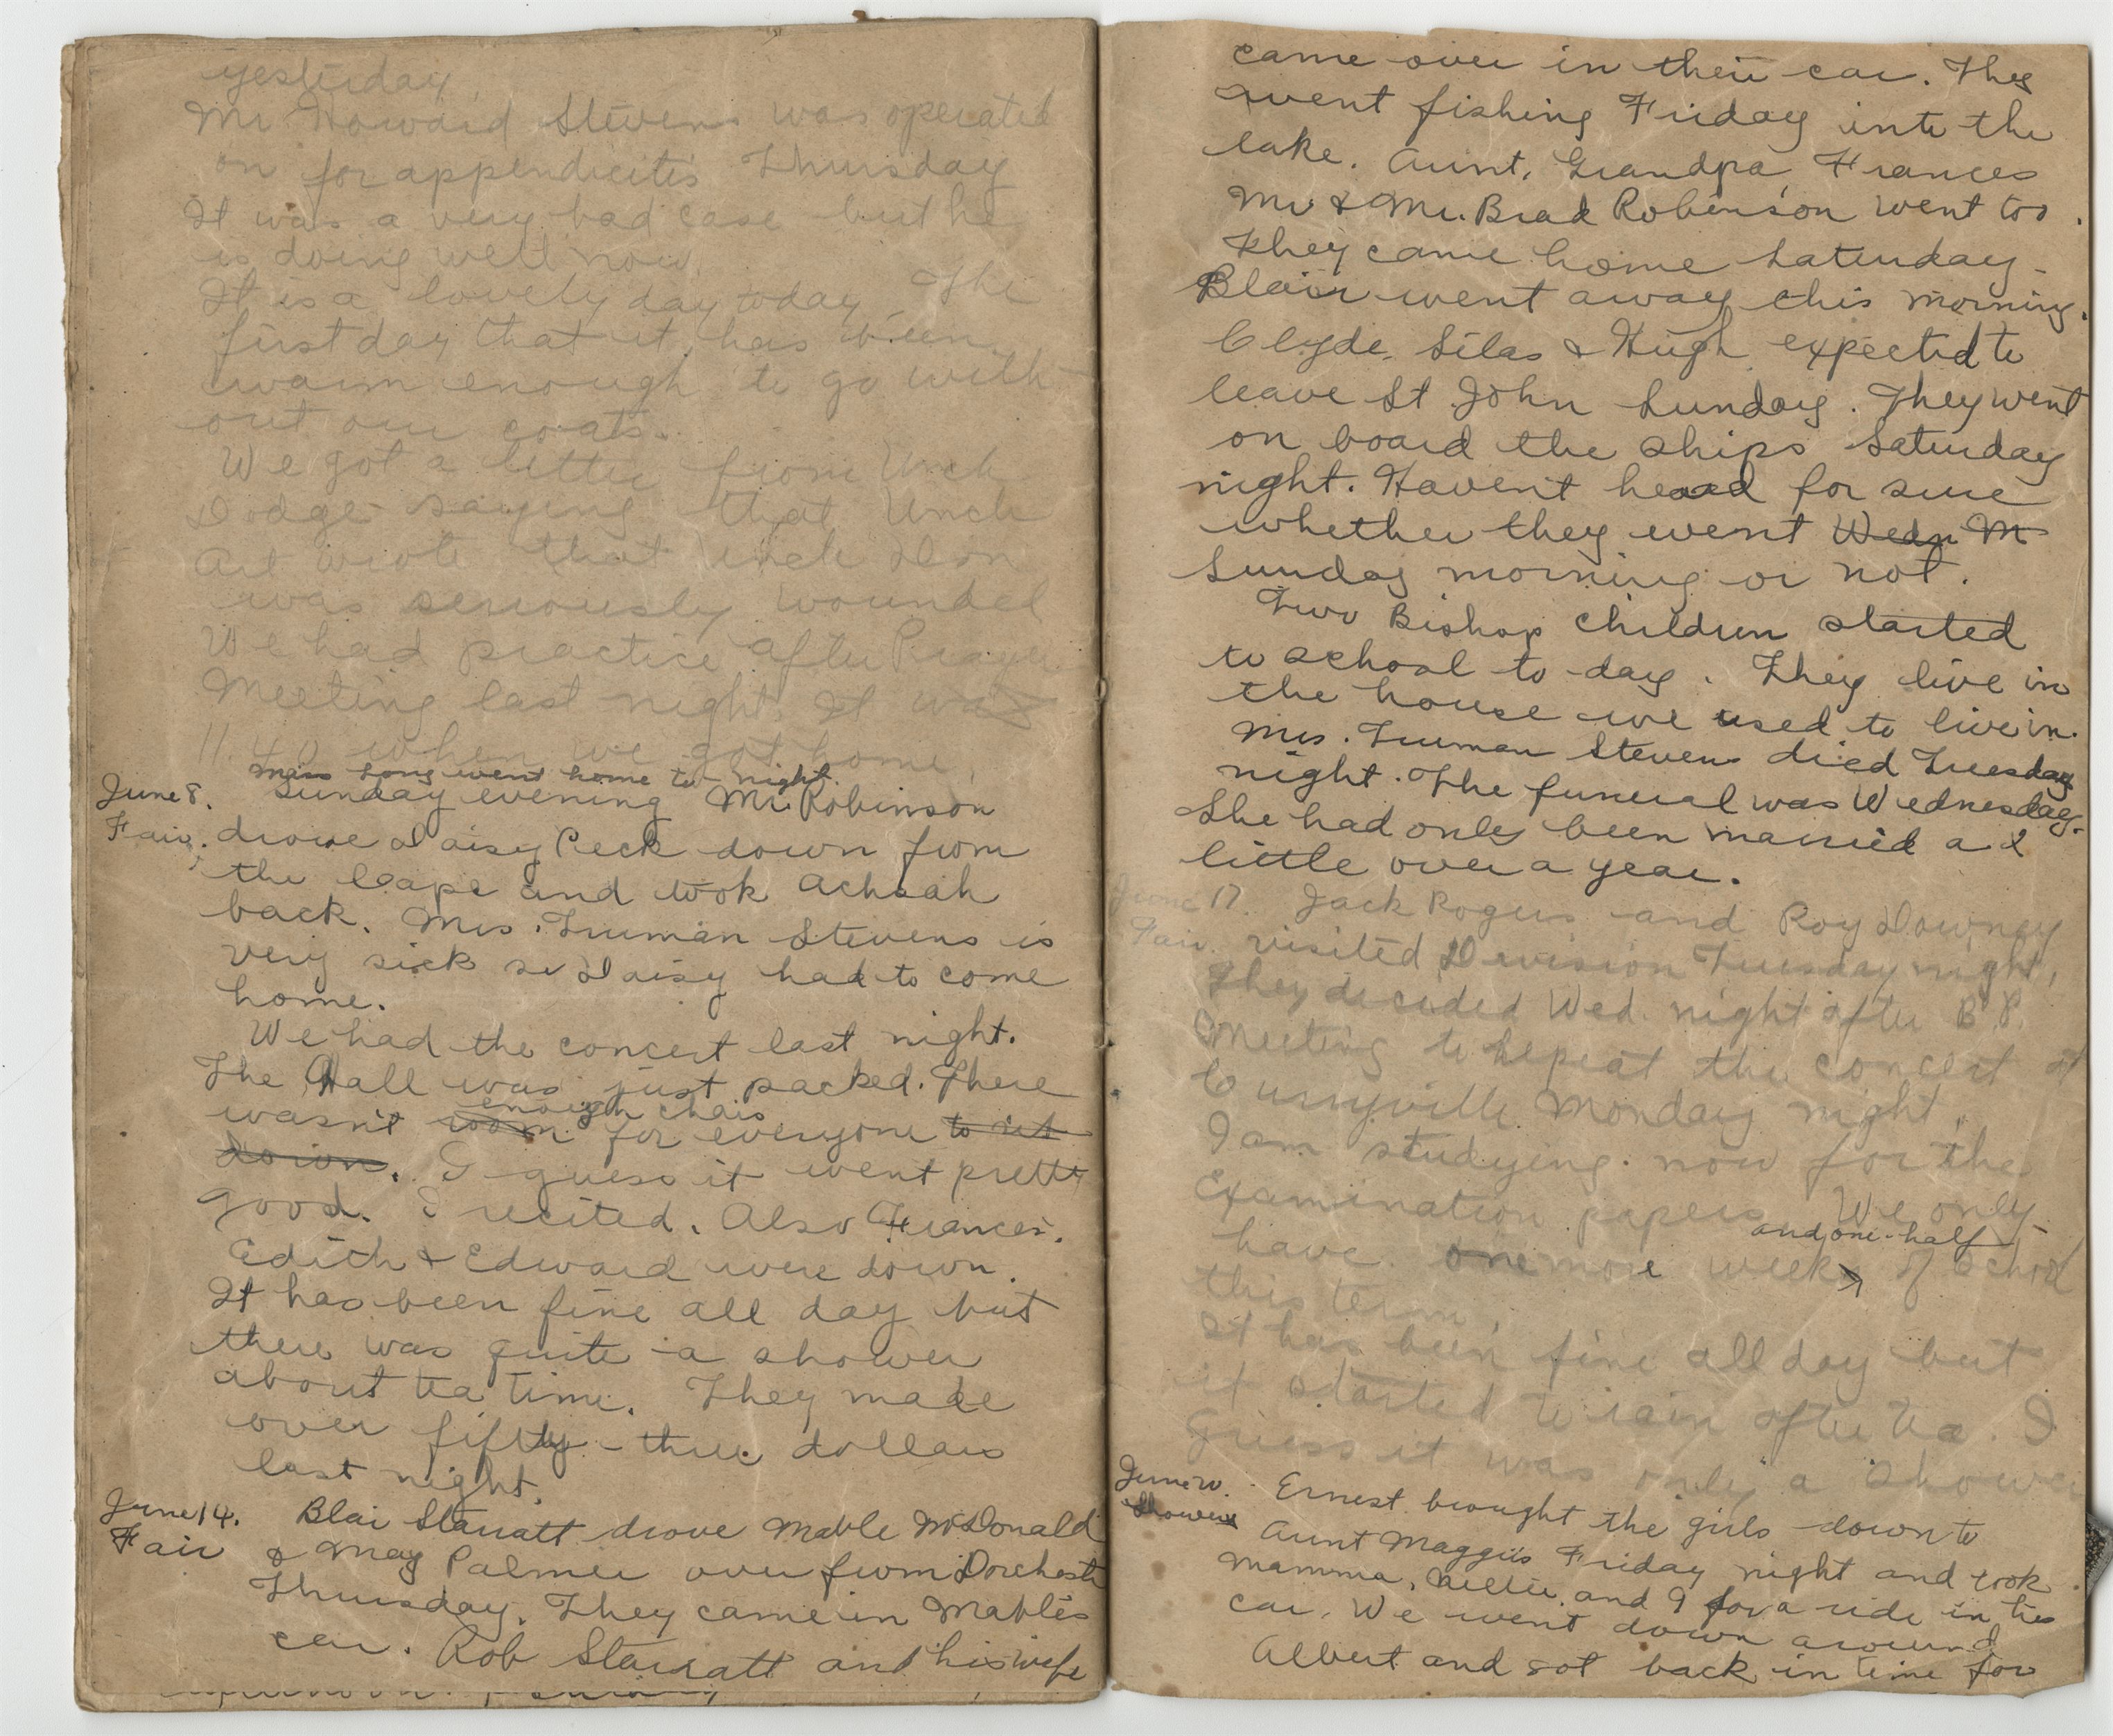 yesterday.
Mr Howard Stevens was operated
on for appendicitis Thursday
It was a very bad case but he
is doing well now.
It is a lovely day today The
first day that it has been
warm enough to go with-
out our coats.
We got a letter from Uncle
Dodge saying that Uncle
Art wrote that Uncle Don
was seriously wounded
We had practice after Prayer
Meeting last night. It was
11.40 when we got home.
Miss Long went home to-night.
June 8. Sunday evening Mr. Robinson
Fair. drove Daisy Peck down from
the Cape and took Achsah
back. Mrs. Truman Stevens is
very sick so Daisy had to come
home.
We had the concert last night.
The Hall was just packed. There
enough chairs
wasn't room for everyone to sit
down. I guess it went pretty
good. I recited. Also Frances.
Edith & Edward were down.
It has been fine all day but
there was quite a shower
about tea time. They made
over fifty-three dollars
last night.
June 14. Blair Starratt drove Mable McDonald
Fair & May Palmer over from Dorchester
Thursday. They came in Mable's
car. Rob Starratt and his wife
came over in their car. They
went fishing Friday into the
lake. Aunt, Grandpa, Frances
Mr & Mr. Brad Robinson went too.
They came home Saturday-
Blair went away this morning.
Clyde, Silas & Hugh expected to
leave St John Sunday. They went
on board the ships Saturday
night. Haven't heard for sure
whether they went Wedn M
Sunday morning or not.
Two Bishop children started
to school to-day. They live in
the house we used to live in.
Mrs. Truman Stevens died Tuesday
night. The funeral was Wednesday.
She had only been married a
little over a year.
June 17. Jack Rogers and Roy Downey
Fair. visited Division Tuesday night,
They decided Wed. night after B.P.
Meeting to repeat the concert at
Curryville Monday night.
I am studying now for the
Examination papers We only
and one-half
have one more weeks of school
this term.
It has been fine all day but
it started to rain after tea. I
Guess it was only a shower
June 20. Ernest brought the girls down to
Showers Aunt Maggie's Friday night and took
Mamma, Nellie, and I for a ride in his
car. We went down around
Albert and got back in time for